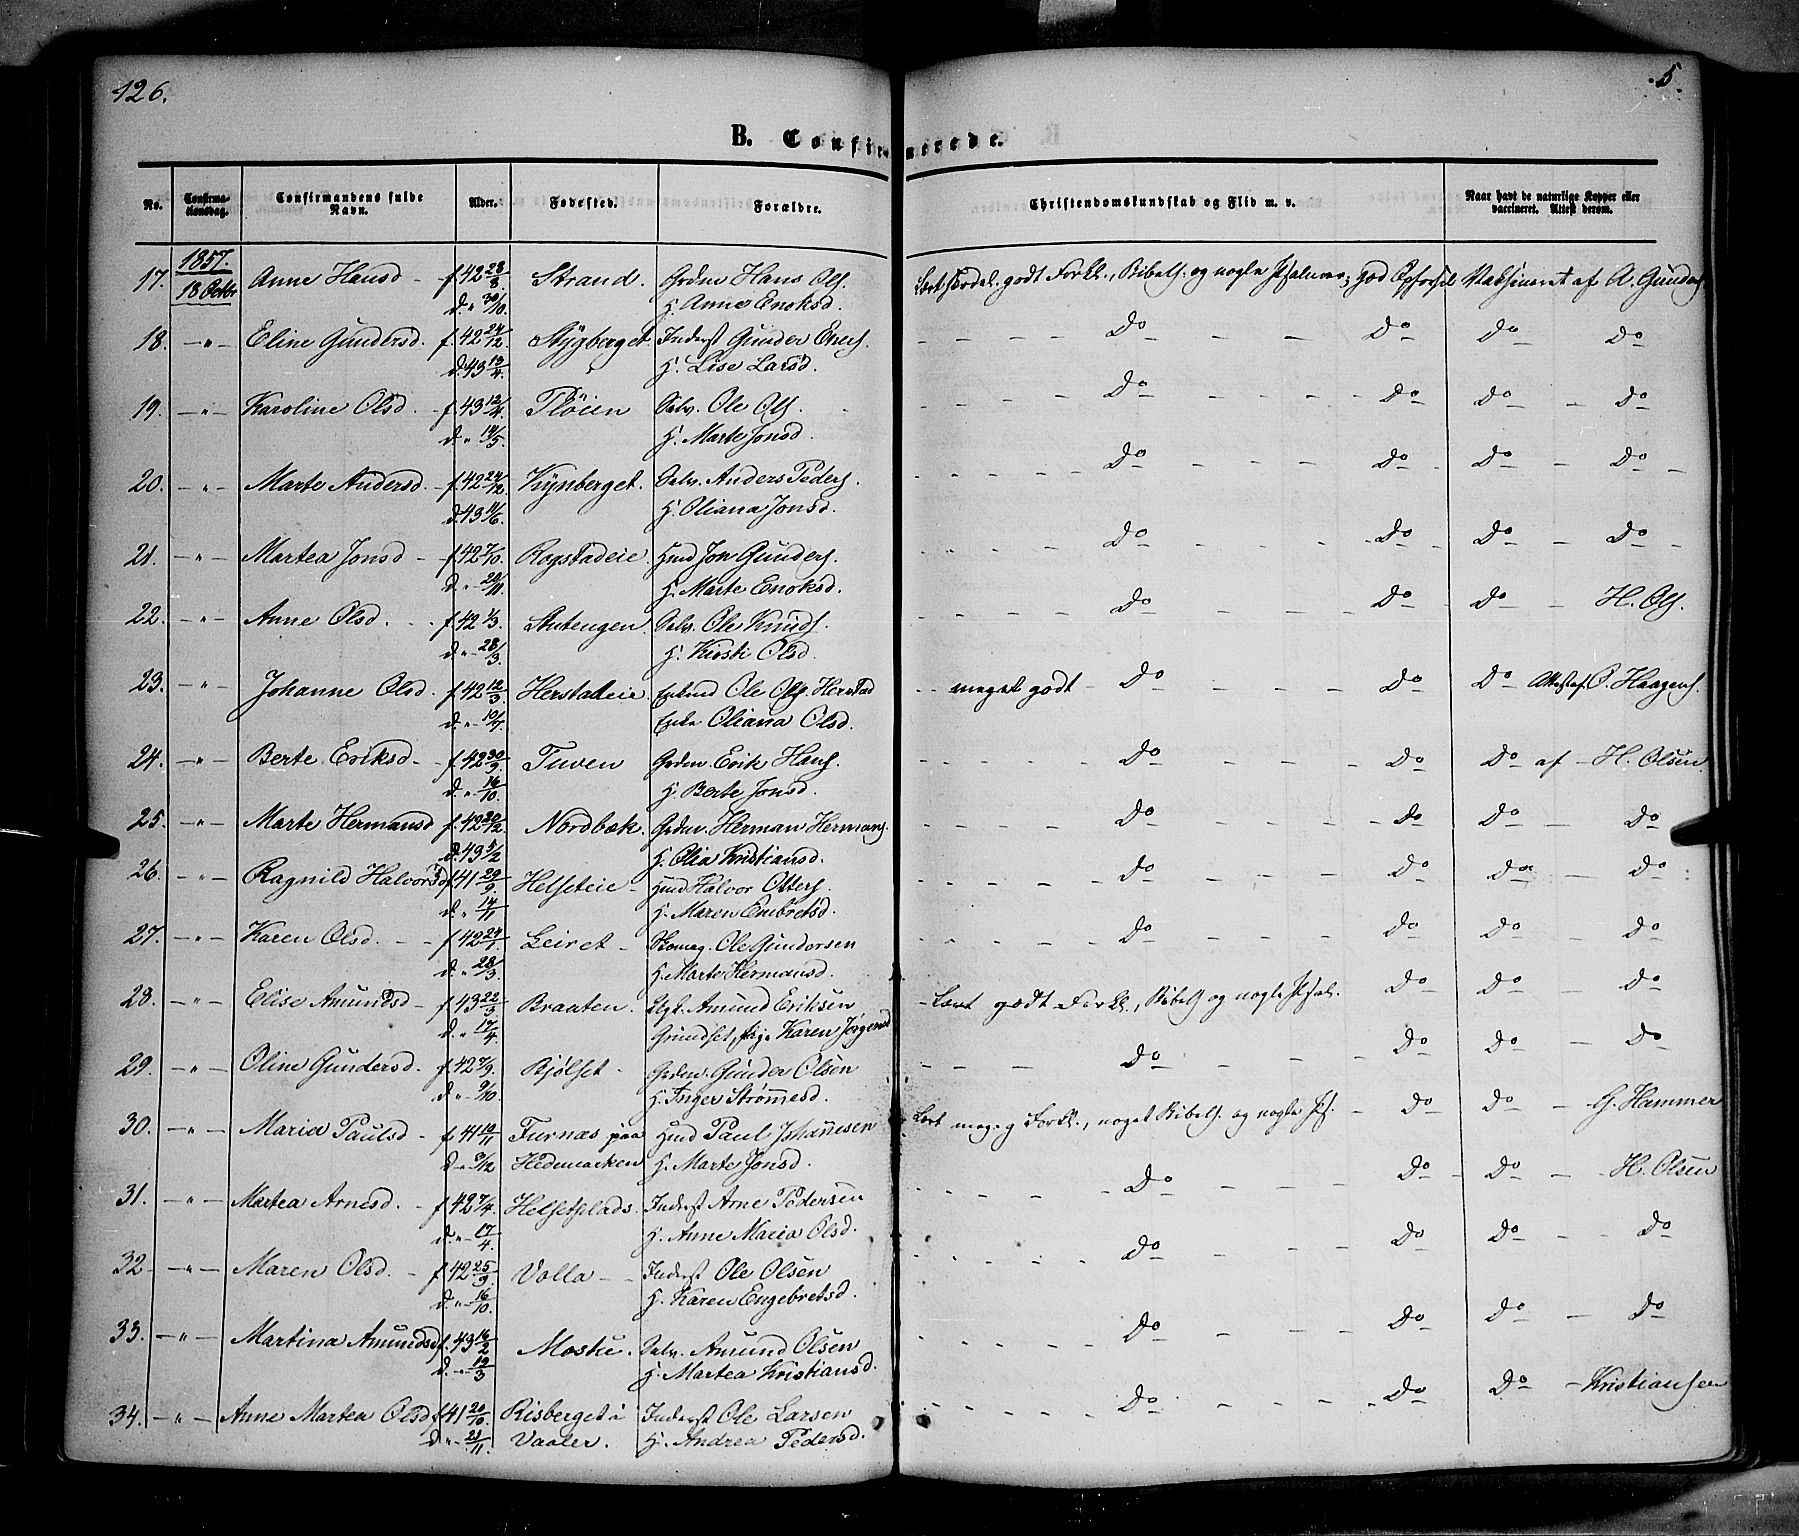 126.
5.
B. Confirmerede.
No. Confirmationsdag. Confirmandens fulde Navn. Alder. Fødested. Forældre. Christendomskundskab og Flid m. v. Naar havt de naturlige Kopper eller vaccineret. Attest derom.
1857.
17. 18 Octbr Anne Hansd - f. 42 28/8. Strand. Grdm Hans Ols. godt Forkl., Bibels. og nogle Psalmer; god Opførsel Vaksineret af A. Gunders.
d. " 30/10. H. Anne Enoksd.
18. - " - Eline Gundersd. f. 42 24/12. Stygberget. Inderst Gunder Ener. Do Do Do Do
d. 43 13/4. H. Lise Larsd.
19. - " - Karoline Olsd. f. 43 12/4. Fløien Selv. Ole Ols. Do Do Do Do
d. " 14/5. H. Marte Jonsd.
20. - " - Marte Andersd. f. 42 24/12. Kynberget. Selv. Anders Peders. Do Do Do Do
d. 43 11/6. H. Oliana Jonsd.
21. - " - Martea Jonsd - f. 42 7/10. Rogstadeie. Hmd Jon Gunders. Do Do Do Do
d. " 20/11. H. Marte Enoksd.
22. - " - Anne Olsd. f. 42 1/3. Stutengen. Selv. Ole Knuds. Do Do Do H. Ols.
d. " 28/3. H. Kirsti Olsd.
23. - " - Johanne Olsd. f. 42 12/3. Herstadeie. Ole Ols. Herstad meget godt Do Do Do Attest af O. Haagens.
d. " 10/7. Enke Oliana Olsd.
24. - " - Berte Eriksd. f. 42 30/9. Tuven Grdm. Erik Hans. Do Do Do af H. Olsen
d. " 16/10. H. Berte Jonsd.
25. - " - Marte Hermansd f. 42 20/12. Nordbæk. Grdm. Herman Hermans. Do Do Do Do
d. 43 5/2 H. Olia Kristiansd.
26. - " - Ragnild Halvorsd f. 41 29/9. Helseteie - Hmd Halvor Otters. Do Do Do Do
d. " 14/11 H. Maren Embretsd.
27. - " - Karen Olsd. f. 42 24/1. Leiret - Skomag. Ole Gundersen Do Do Do Do
d. " 28/3. H. Marte Hermansd.
28. - " - Elise Amundsd - f. 43 22/3 Braaten. Ugt. Amund Eriksen - Lært godt Forkl., Bibels og nogle Psal. Do Do Do
d. " 17/4. Grundset, Pige Karen Jørgensd
29. - " - Oline Gundersd. f. 42 7/9. Bjølset - Grdm. Gunder Olsen Do Do Do Do
d. " 9/10. H. Inger Strømesd.
30. - " - Maria Paulsd - f. 41 19/11 Furnæs paa Hmd Paul Johannesen Lært meg. g Forkl., noget Bibels. og nogle Ps. - Do Do G. Hammer
d. " 3/12 Hedemarken H. Marte Jonsd.
31. - " - Martea Arnesd. - f. 42 7/4. Helsetplads. Inderst Arne Pedersen Do Do Do H. Olsen
d. " 17/4. H. Anne Maria Olsd.
32 - " - Maren Olsd. - f. 42 25/9. Volla - Inderst Ole Olsen Do Do Do Do
d. " 16/10. H. Karen Engebretsd.
33. - " - Martina Amundsd f. 43 16/2 Moskie. Selv. Amund Olsen Do Do Do Do
d. " 19/3 H. Martea Kristiansd.
34. - " - Anne Martea Olsd f. 41 20/10. Risberget i Inderst Ole Larsen Do Do Do - Kristiansen
d. " 21/11. Vaaler. H. Andrea Pedersd.